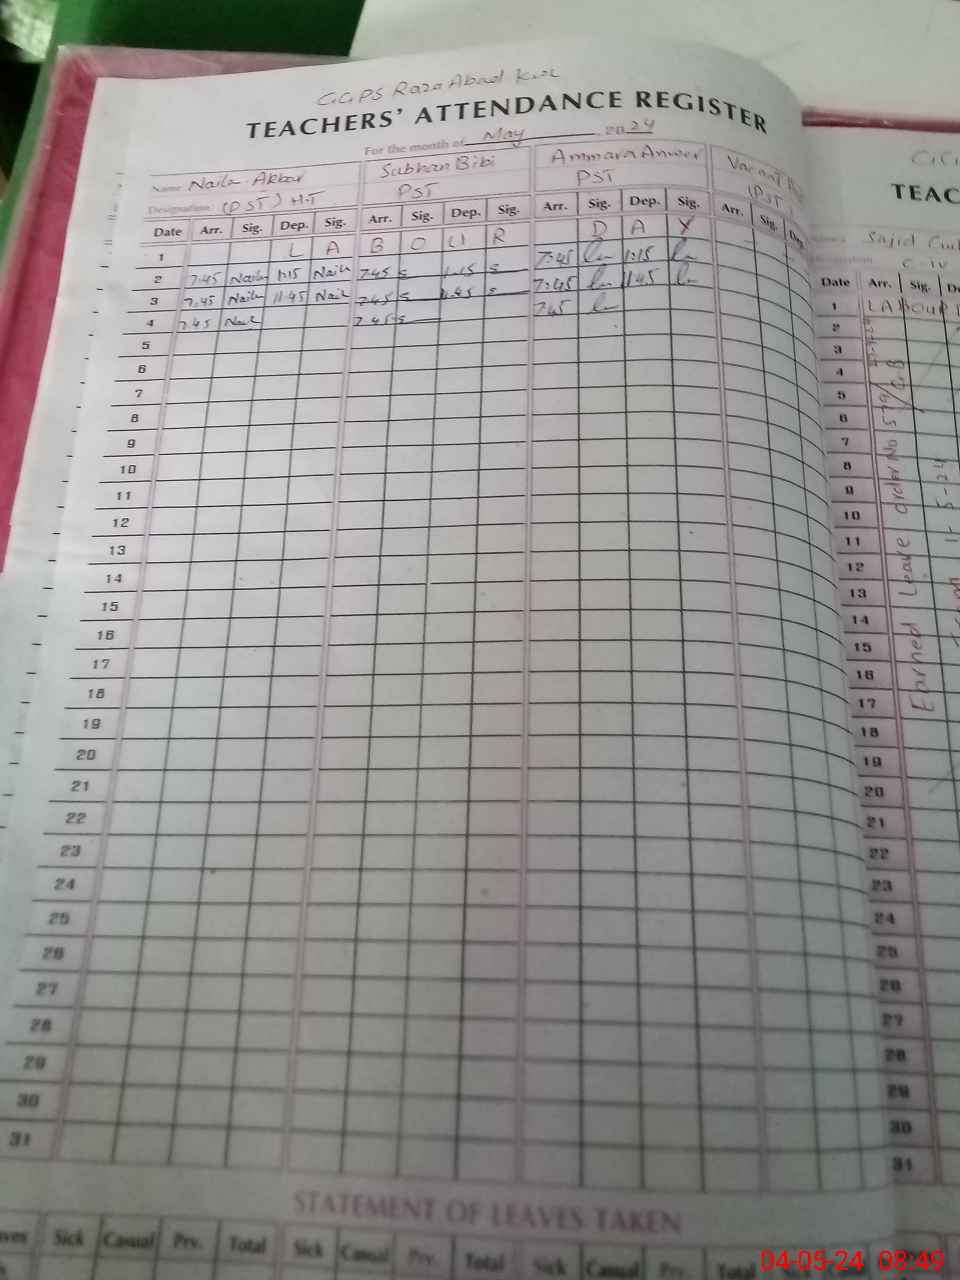 GGPS Raza Abad
TEACHERS' ATTENDANCE REGISTER
For the month of May, 2024
Name Naila Akbar Subhan Bibi Ammara Anweer Vacant
Designation: (PST) H.T PST PST (PST)
Date Arr. Sig. Dep. Sig. Arr. Sig. Dep. Sig. Arr. Sig. Dep. Sig. Arr. Sig. Dep.
1 L A B O U R D A Y
2 7:45 Naila 1:15 Naila 7:45 s 1:15 s 7:45 1:15
3 7:45 Naila 11:45 Naila 7:45 s 11:45 s 7:45 11:45
4 7:45 Naila 7:45 s 7:45
5
6
7
8
9
10
11
12
13
14
15
16
17
18
19
20
21
22
23
24
25
26
27
28
29
30
31
STATEMENT OF LEAVES TAKEN
Sick Casual Prv. Total Sick Casual Prv. Total Sick Casual Prv. Total
TEAC
Sajid
C-IV
Date Arr. Sig.
1 LABOUR
2
3
4
5
6
7
8
9
10
11
12
13
14
15
16
17
18
19
20
21
22
23
24
25
26
27
28
29
30
31
Earned Leave order No 579
04-05-24 08:49